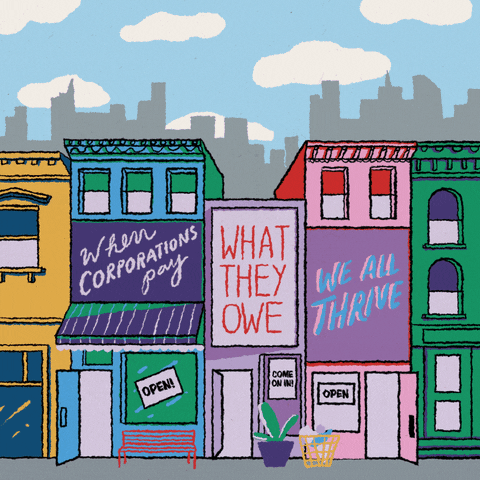 When
CORPORATIONS
pay
WHAT
THEY
OWE
WE ALL
THRIVE
OPEN!
COME
ON IN!
OPEN